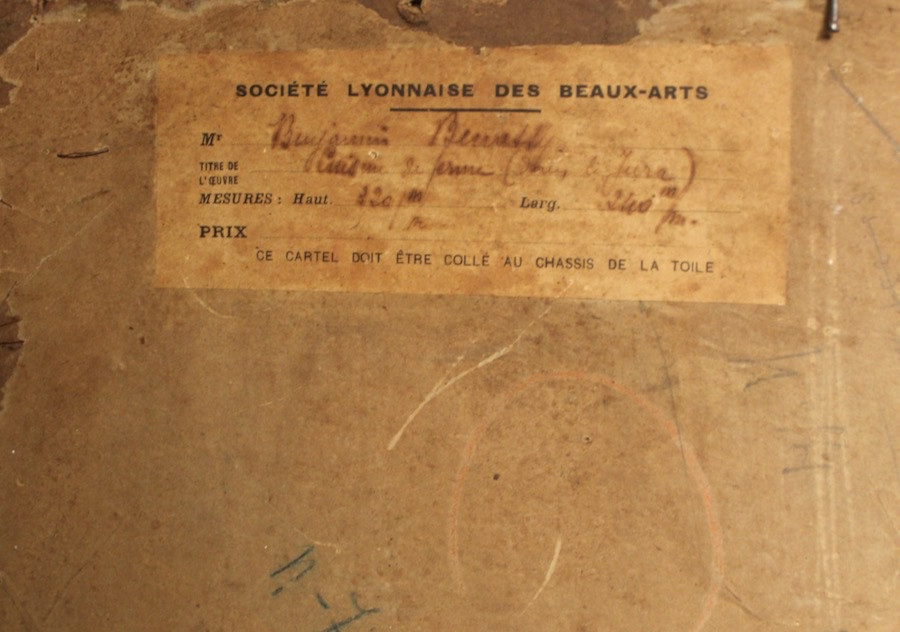 SOCIÉTÉ LYONNAISE DES BEAUX-ARTS
Mr Benjamin
TITRE DE L'ŒUVRE Cuisine de ferme ( de Jura)
MESURES : Haut. 220 m Larg. 240 m
PRIX
CE CARTEL DOIT ÊTRE COLLÉ AU CHASSIS DE LA TOILE